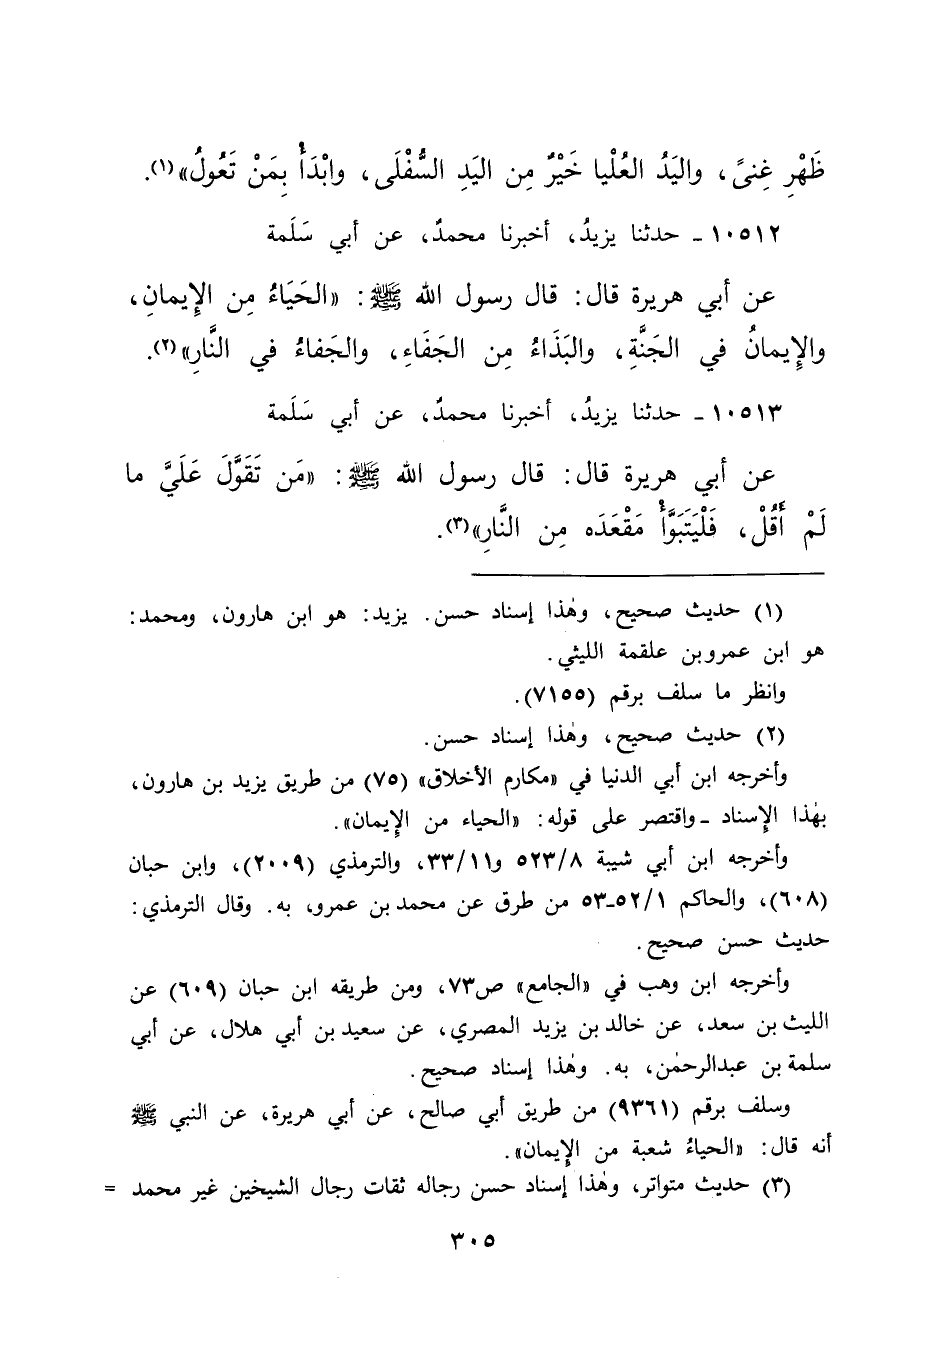 ظَهْرِ غِنىً، واليَدُ العُلْيا خَيْرٌ مِن اليَدِ السُّفْلَى، وابْدَأْ بِمَنْ تَعُولُ»(١).
١٠٥١٢ - حدثنا يزيدُ، أخبرنا محمدٌ، عن أبي سَلَمة
عن أبي هريرة قال: قال رسول الله ﷺ: «الحَيَاءُ مِن الإِيمانِ،
والإِيمانُ في الجَنَّةِ، والبَذَاءُ مِن الجَفَاءِ، والجَفاءُ في النَّارِ»(٢).
١٠٥١٣ - حدثنا يزيدُ، أخبرنا محمدٌ، عن أبي سَلَمة
عن أبي هريرة قال: قال رسول الله ﷺ: «مَن تَقَوَّلَ عَلَيَّ ما
لَمْ أَقُلْ، فَلْيَتَبَوَّأْ مَقْعَدَه مِن النَّارِ»(٣).
(١) حديث صحيح، وهٰذا إسناد حسن. يزيد: هو ابن هارون، ومحمد:
هو ابن عمرو بن علقمة الليثي.
وانظر ما سلف برقم (٧١٥٥).
(٢) حديث صحيح، وهٰذا إسناد حسن.
وأخرجه ابن أبي الدنيا في «مكارم الأخلاق» (٧٥) من طريق يزيد بن هارون،
بهٰذا الإِسناد - واقتصر على قوله: «الحياء من الإِيمان».
وأخرجه ابن أبي شيبة ٥٢٣/٨ و٣٣/١١، والترمذي (٢٠٠٩)، وابن حبان
(٦٠٨)، والحاكم ٥٢/١-٥٣ من طرق عن محمد بن عمرو، به. وقال الترمذي:
حديث حسن صحيح.
وأخرجه ابن وهب في «الجامع» ص٧٣، ومن طريقه ابن حبان (٦٠٩) عن
الليث بن سعد، عن خالد بن يزيد المصري، عن سعيد بن أبي هلال، عن أبي
سلمة بن عبدالرحمٰن، به. وهٰذا إسناد صحيح.
وسلف برقم (٩٣٦١) من طريق أبي صالح، عن أبي هريرة، عن النبي ﷺ
أنه قال: «الحياءُ شعبة من الإِيمان».
(٣) حديث متواتر، وهٰذا إسناد حسن رجاله ثقات رجال الشيخين غير محمد =
٣٠٥